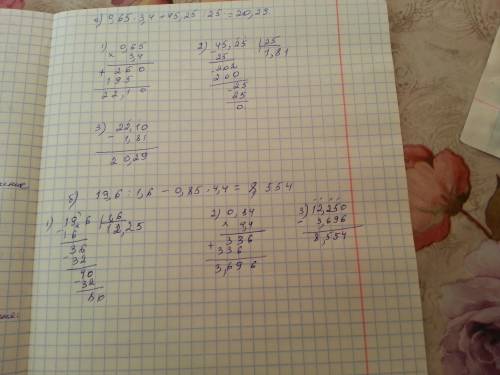 а) 0,65 · 3,4 + 45,25 : 25 = 20,29
1) 0,65
× 3,4
+ 260
195
22,10
2) 45,25 | 25
25 1,81
202
200
- 25
25
0
3) 22,10
- 1,81
20,29
б) 19,6 : 1,6 - 0,85 · 4,4 = 8,554
1) 19,6 | 1,6
- 16 12,25
36
- 32
40
- 32
80
2) 0,84
× 4,4
+ 336
336
3,696
3) 12,250
- 3,696
8,554